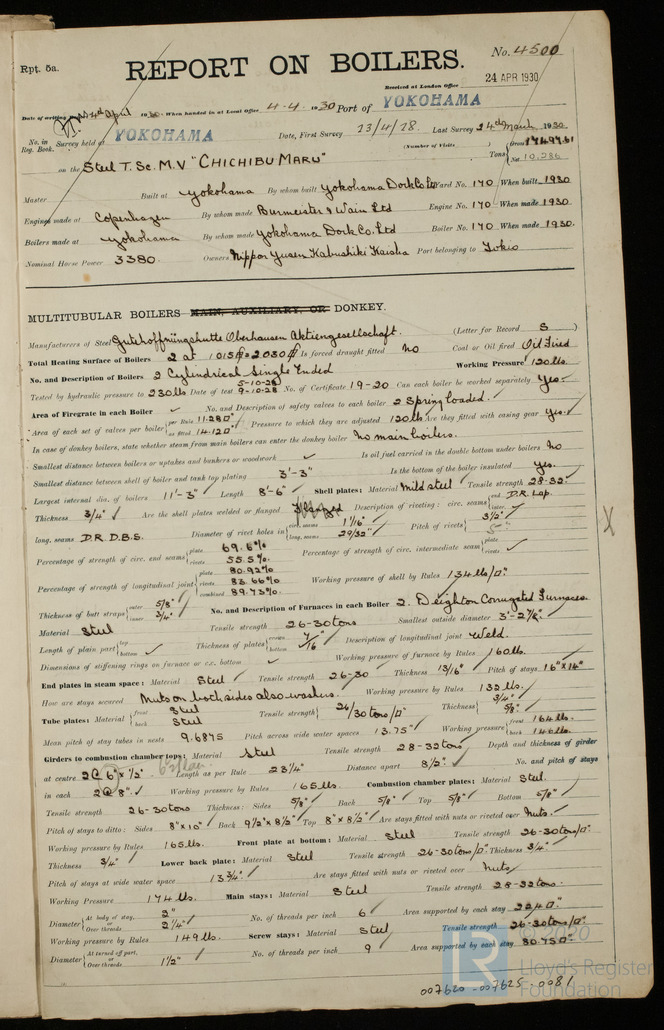 Rpt. 5a.
No. 4500
REPORT ON BOILERS.
Received at London Office 24 APR 1930
Date of writing Report 4th April 1930. When handed in at Local Office 4-4-1930 Port of YOKOHAMA
No. in Reg. Book. Survey held at YOKOHAMA Date, First Survey 13/4/28. Last Survey 24th March 1930
(Number of Visits ) Gross 17497.61
on the Steel T.Sc. M.V "CHICHIBU MARU" Tons Net 10,286
Master Built at Yokohama By whom built Yokohama Dock Co Ltd Yard No. 170 When built 1930
Engines made at Copenhagen By whom made Burmeister & Wain Ltd Engine No. 170 When made 1930
Boilers made at Yokohama By whom made Yokohama Dock Co. Ltd Boiler No. 170 When made 1930.
Nominal Horse Power 3380. Owners Nippon Yusen Kabushiki Kaisha Port belonging to Tokio
MULTITUBULAR BOILERS MAIN, AUXILIARY, OR DONKEY.
Manufacturers of Steel Gutehoffnungshutte Oberhausen Aktiengesellschaft. (Letter for Record S )
Total Heating Surface of Boilers 2 at 1015 = 2030 Is forced draught fitted No Coal or Oil fired Oil Fired
No. and Description of Boilers 2 Cylindrical Single Ended Working Pressure 120 lbs.
Tested by hydraulic pressure to 230 lbs Date of test 5-10-28 9-10-28 No. of Certificate 19-20 Can each boiler be worked separately Yes
Area of Firegrate in each Boiler ✓ No. and Description of safety valves to each boiler 2 Spring loaded.
Area of each set of valves per boiler per Rule 11.28 as fitted 14.12 Pressure to which they are adjusted 120 lbs. Are they fitted with easing gear Yes.
In case of donkey boilers, state whether steam from main boilers can enter the donkey boiler No main boilers.
Smallest distance between boilers or uptakes and bunkers or woodwork ✓ Is oil fuel carried in the double bottom under boilers No
Smallest distance between shell of boiler and tank top plating 3'-3" Is the bottom of the boiler insulated Yes.
Largest internal dia. of boilers 11'-3" Length 8'-6" Shell plates: Material Mild steel Tensile strength 28-32
Thickness 3/4" Are the shell plates welded or flanged Description of riveting: circ. seams end D.R. Lap. inter. ✓
long. seams D.R. D.B.S. Diameter of rivet holes in circ. seams 1 1/16" long. seams 29/32" Pitch of rivets 3 1/2" 5"
Percentage of strength of circ. end seams plate 69.6% rivets 55.5% Percentage of strength of circ. intermediate seam plate rivets ✓
Percentage of strength of longitudinal joint plate 80.92% rivets 83.66% combined 89.73% Working pressure of shell by Rules 134 lbs/□"
Thickness of butt straps outer 5/8" inner 3/4" No. and Description of Furnaces in each Boiler 2. Deighton Corrugated Furnaces
Material Steel Tensile strength 26-30 tons Smallest outside diameter 3'-2 7/8"
Length of plain part top bottom ✓ Thickness of plates crown bottom 7/16" Description of longitudinal joint Weld.
Dimensions of stiffening rings on furnace or c.c. bottom ✓ Working pressure of furnace by Rules 160 lbs.
End plates in steam space: Material Steel Tensile strength 26-30 Thickness 13/16" Pitch of stays 16" x 14"
How are stays secured Nuts on both sides also washers. Working pressure by Rules 132 lbs.
Tube plates: Material front Steel back Steel Tensile strength 26/30 tons/□" Thickness 3/4" 5/8"
Mean pitch of stay tubes in nests 9.6875 Pitch across wide water spaces 13.75" Working pressure front 164 lbs. back 140 lbs.
Girders to combustion chamber tops: Material Steel Tensile strength 28-32 tons Depth and thickness of girder
at centre 2 @ 6" x 1/2" Length as per Rule 23 1/4" Distance apart 8 1/2" No. and pitch of stays
in each 2 @ 8" Working pressure by Rules 165 lbs. Combustion chamber plates: Material Steel.
Tensile strength 26-30 tons Thickness: Sides 5/8" Back 5/8" Top 5/8" Bottom 5/8"
Pitch of stays to ditto: Sides 8" x 10" Back 9 1/2" x 8 1/2" Top 8" x 8 1/2" Are stays fitted with nuts or riveted over Nuts.
Working pressure by Rules 165 lbs. Front plate at bottom: Material Steel Tensile strength 26-30 tons/□"
Thickness 3/4" Lower back plate: Material Steel Tensile strength 26-30 tons/□" Thickness 3/4"
Pitch of stays at wide water space 13 3/4" Are stays fitted with nuts or riveted over Nuts
Working Pressure 174 lbs. Main stays: Material Steel Tensile strength 28-32 tons.
Diameter At body of stay, or Over threads 2" 2 1/4" No. of threads per inch 6 Area supported by each stay 224□"
Working pressure by Rules 149 lbs. Screw stays: Material Steel Tensile strength 26-30 tons/□"
Diameter At turned off part, or Over threads 1 1/2" No. of threads per inch 9 Area supported by each stay 80.75□"
© 2020
LR
Lloyd's Register
Foundation
007620-007625-0081